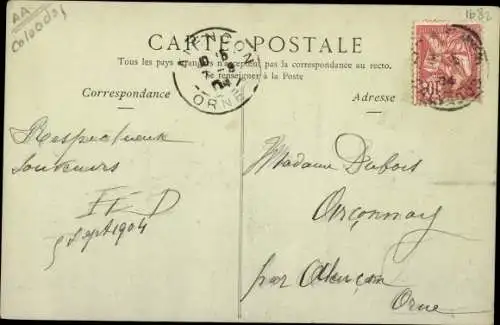 AA
1682
CARTE POSTALE
Tous les pays étrangers n'acceptent pas la correspondance au recto.
Se renseigner à la Poste
Correspondance
Adresse
ALENÇON
ORNE
Respectueux
souvenirs
5 Sept 1904
Madame Dubois
Arçonnay
par Alençon
Orne